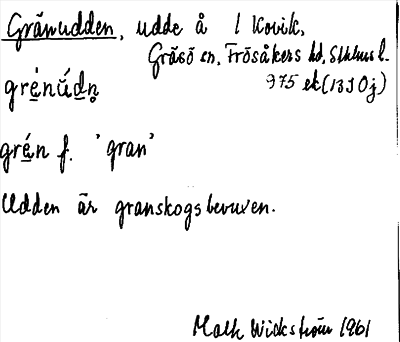 Gränudden, udde å 1 Kovik,
Gräsö sn, Frösåkers hd, Sthlms l.
975 ek (13J 0j)
gré̱nŭ́ḏn̥
gré̱n f. 'gran'
Udden är granskogsbevuxen.
Wickström 1961